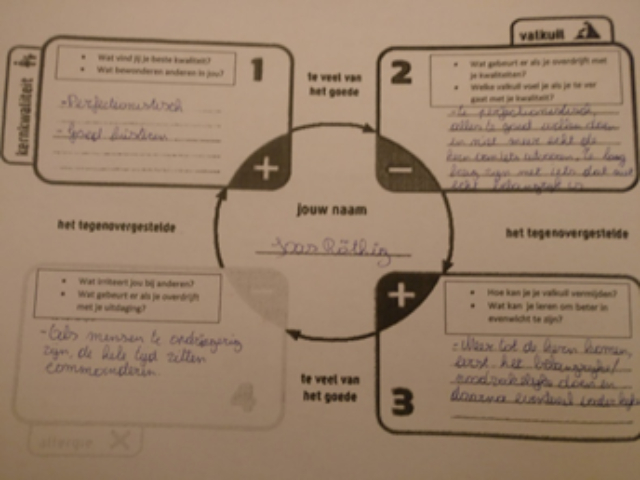 kernkwaliteit
1
• Wat vind jij je beste kwaliteit?
• Wat bewonderen anderen in jou?
- Perfectionistisch
- Goed luisteren
te veel van
het goede
valkuil
2
• Wat gebeurt er als je overdrijft met
je kwaliteiten?
• Welke valkuil voel je als je te ver
gaat met je kwaliteit?
- te perfectionistisch,
alles te goed willen doen
en niet meer echt de
kern te lang
bezig zijn met iets dat niet
echt belangrijk is
het tegenovergestelde
jouw naam
het tegenovergestelde
• Wat irriteert jou bij anderen?
• Wat gebeurt er als je overdrijft
met je uitslaging?
- Als mensen te
zijn, de hele tijd zitten
commanderen.
4
allergie
te veel van
het goede
• Hoe kan je je valkuil vermijden?
• Wat kan je leren om beter in
evenwicht te zijn?
- Meer tot de kern komen,
eerst het belangrijke/
noodzakelijke doen en
daarna eventueel
3